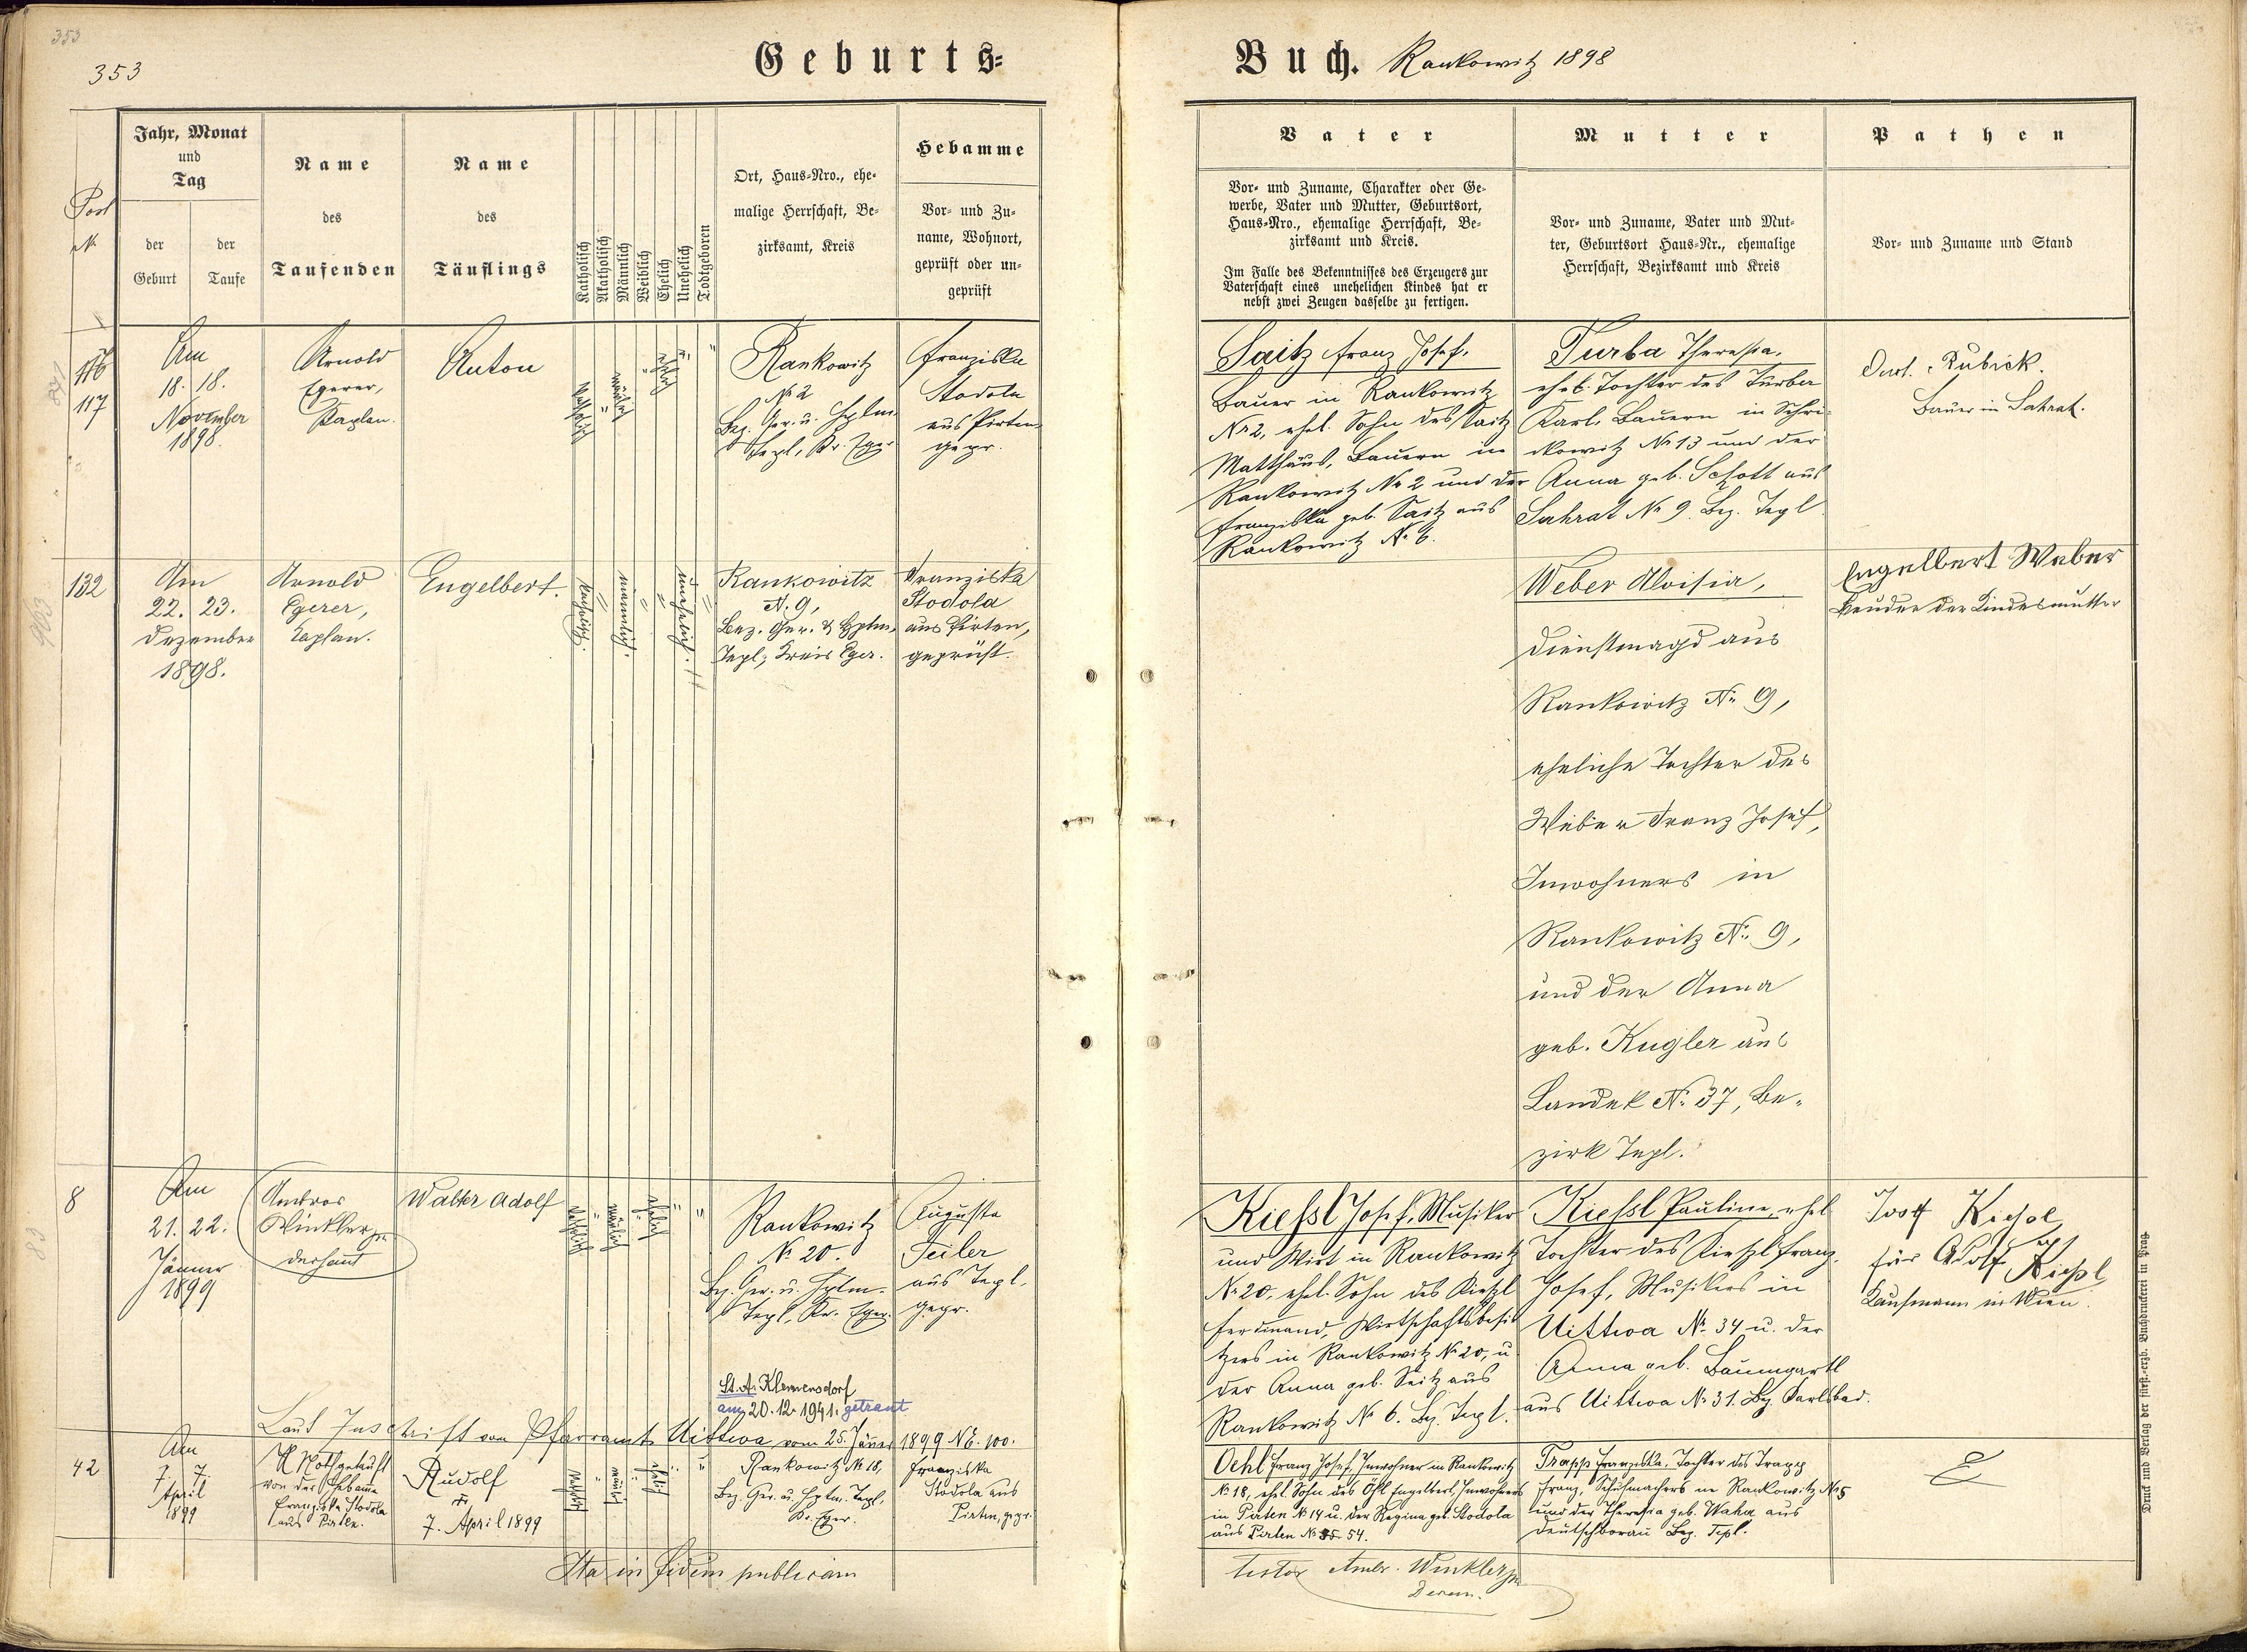 353
353
Geburts=
Buch. Rankowitz 1898
Post
N
Jahr, Monat
und
Tag
der
Geburt
der
Taufe
Name
des
Taufenden
Name
des
Täuflings
Katholisch
Akatholisch
Männlich
Weiblich
Ehelich
Unehelich
Todtgeboren
Ort, Haus-Nro., ehe-
malige Herrschaft, Be-
zirksamt, Kreis
Hebamme
Vor- und Zu-
name, Wohnort,
geprüft oder un-
geprüft
Vater
Vor- und Zuname, Charakter oder Ge-
werbe, Vater und Mutter, Geburtsort,
Haus-Nro., ehemalige Herrschaft, Be-
zirksamt und Kreis.
Im Falle des Bekenntnisses des Erzeugers zur
Vaterschaft eines unehelichen Kindes hat er
nebst zwei Zeugen dasselbe zu fertigen.
Mutter
Vor- und Zuname, Vater und Mut-
ter, Geburtsort Haus-Nr., ehemalige
Herrschaft, Bezirksamt und Kreis
Pathen
Vor- und Zuname und Stand
116
117
Am
18. 18.
November
1898.
Arnold
Egerer,
Kaplan.
Anton
katholisch
"
männlich
"
ehelich
"
"
Rankowitz
№ 2
Bez. Ger. u. Hptm.
Tepl, Kr. Eger
Franziska
Stodola
aus Pirten
gepr.
Saitz Franz Josef,
Bauer in Rankowitz
№ 2, ehel. Sohn des Saitz
Matthäus, Bauern in
Rankowitz № 2 und der
Franziska geb. Saitz aus
Rankowitz № 6.
Turba Theresia,
ehel. Tochter des Turba
Karl, Bauern in Schri-
kowitz № 13 und der
Anna geb. Schott aus
Sahrat № 9. Bez. Tepl
Rubick.
Bauer in Sahrat.
132
903
Am
22. 23.
Dezember
1898.
Arnold
Egerer,
Kaplan.
Engelbert.
katholisch.
"
männlich.
"
"
unehelich.
"
Rankowitz
N. 9,
Bez. Ger. & Hptm.
Tepl; Kreis Eger.
Franziska
Stodola
aus Pirten,
geprüft.
Weber Aloisia,
Dienstmagd aus
Rankowitz № 9,
eheliche Tochter des
Weber Franz Josef,
Inwohners in
Rankowitz №. 9,
und der Anna
geb. Kugler aus
Landek №. 37, Be-
zirk Tepl.
Engelbert Weber
Bruder der Kindesmutter
8
83
Am
21. 22.
Jänner
1899
Ambros
Winkler
Dechant
Walter Adolf
katholisch
"
männlich
"
ehelich
"
"
Rankowitz
№ 20.
Bez. Ger. u. Hptm.
Tepl, Kr. Eger.
Augusta
Teiler
aus Tepl,
gepr.
Kießl Josef, Musiker
und Wirt in Rankowitz
№ 20, ehel. Sohn des Kießl
Ferdinand, Wirtschaftsbesit-
zers in Rankowitz № 20, u.
der Anna geb. Seitz aus
Rankowitz № 6. Bz. Tepl.
Kießl Pauline, ehel.
Tochter des Kießl Franz
Josef, Musikers in
Uittwa №. 34 u. der
Anna geb. Baumgartl
aus Uittwa №. 31. Bz. Karlsbad.
Josef Kießl
für Adolf Kießl
Kaufmann in Wien.
St. A. Klemensdorf
am 20.12.1941. getraut
Laut Zuschrift vom Pfarramt Uittwa vom 25. Jänner 1899 NE. 100.
42
Am
7. 7.
April
1899
Nothgetauft
von der Hebamme
Franziska Stodola
aus Pirten.
Rudolf
†
7. April 1899
katholisch
"
männlich
"
ehelich
"
"
Rankowitz № 18,
Bez. Ger. u. Hptm. Tepl,
Kr. Eger.
Franziska
Stodola aus
Pirten, gepr.
Oehl Franz Josef, Inwohner in Rankowitz
№ 18, ehel. Sohn des Öhl Engelbert, Inwohners
in Pirten № 14 u. der Regina geb. Stodola
aus Pirten № 54.
Trapp Franziska, Tochter des Trapp
Franz, Schuhmachers in Rankowitz № 5
und der Theresia geb. Waha aus
Deutschborau Bez. Tepl.
Ita in fidem publicam
testor Ambr. Winkler
Decan.
Druck und Verlag der fürst.-erzb. Buchdruckerei in Prag.